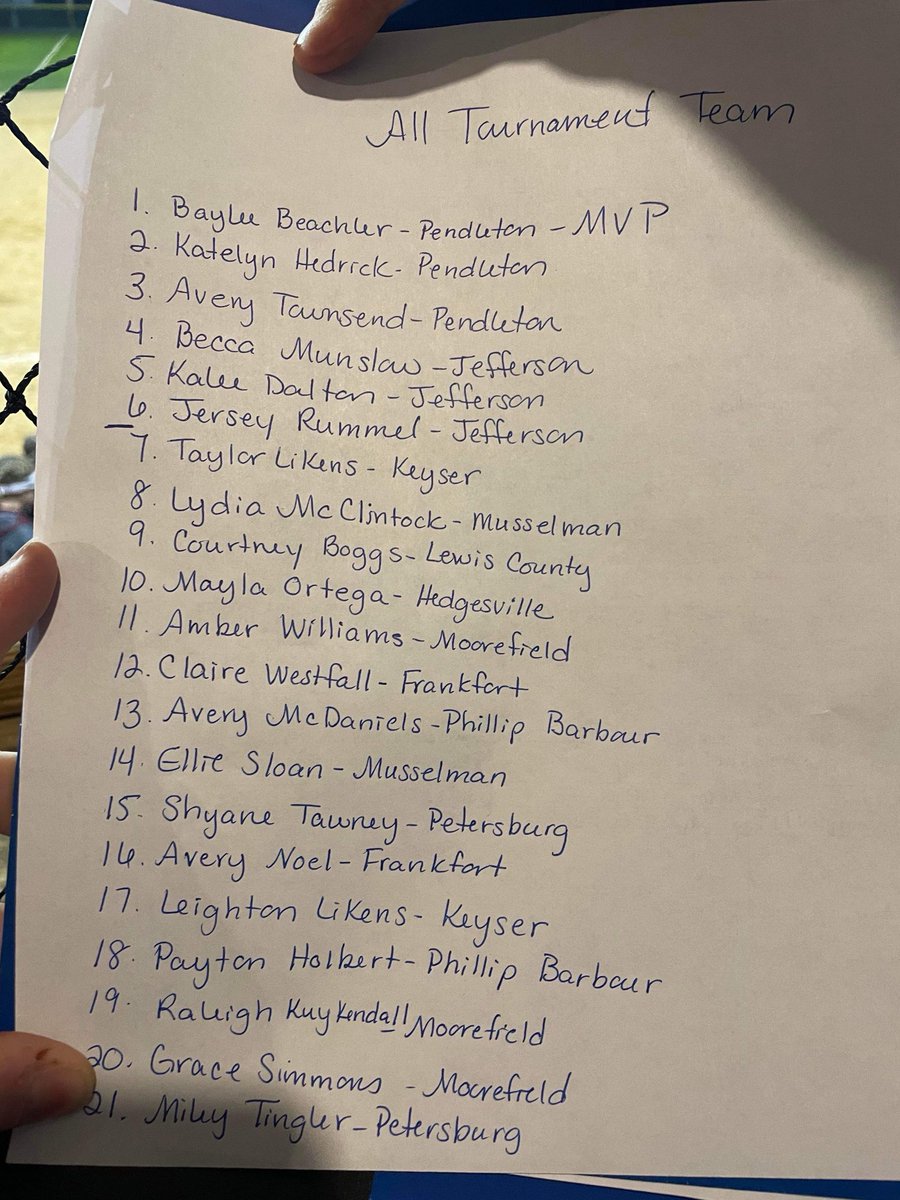 All Tournament Team
1. Baylee Beachler - Pendleton - MVP
2. Katelyn Hedrick - Pendleton
3. Avery Townsend - Pendleton
4. Becca Munslaw - Jefferson
5. Kalee Dalton - Jefferson
6. Jersey Rummel - Jefferson
7. Taylor Likens - Keyser
8. Lydia McClintock - Musselman
9. Courtney Boggs - Lewis County
10. Mayla Ortega - Hedgesville
11. Amber Williams - Moorefield
12. Claire Westfall - Frankfort
13. Avery McDaniels - Phillip Barbour
14. Ellie Sloan - Musselman
15. Shyane Tawney - Petersburg
16. Avery Noel - Frankfort
17. Leighton Likens - Keyser
18. Payton Holbert - Phillip Barbour
19. Raleigh Kuykendall Moorefield
20. Grace Simmons - Moorefield
21. Miley Tingler - Petersburg